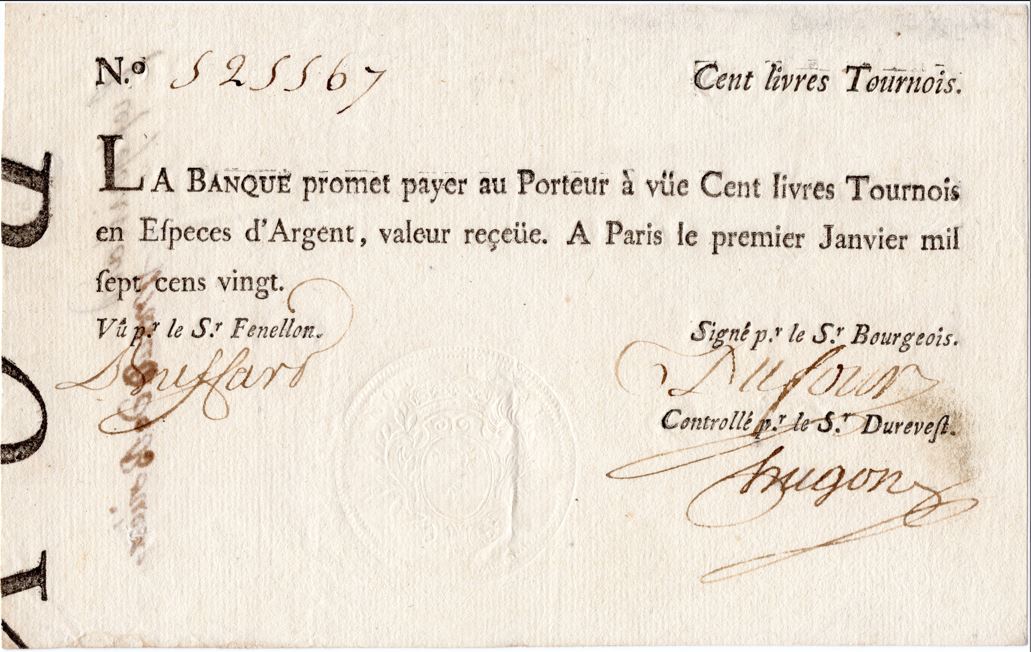 N.º 525567
Cent livres Tournois.
LA BANQUE promet payer au Porteur à vüe Cent livres Tournois
en Eſpeces d'Argent, valeur reçeüe. A Paris le premier Janvier mil
ſept cens vingt.
Vû p.r le S.r Fenellon.
Signé p.r le S.r Bourgeois.
Dufour
Controllé p.r le S.r Dureveſt.
hugon